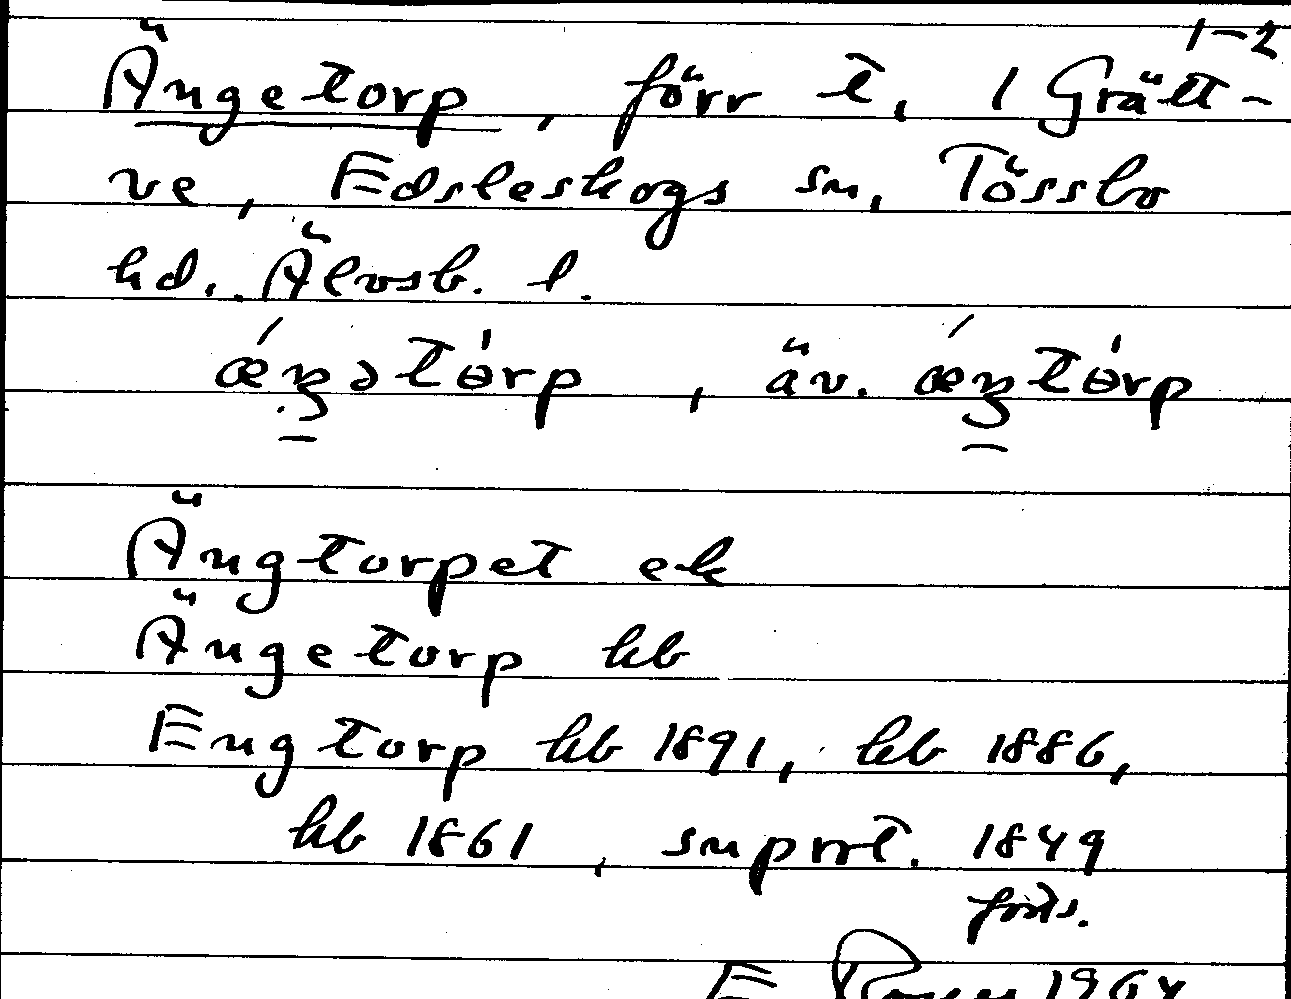 1-2
Ängetorp, förr t. 1 Grätt-
ve, Edsleskogs sn, Tössbo
hd. Älvsb. l.
ǽŋətò́rp, äv. ǽŋtò́rp
Ängtorpet ek
Ängetorp kb
Engtorp kb 1891, kb 1886,
kb 1861, snprrt. 1849
forts.
E 1964